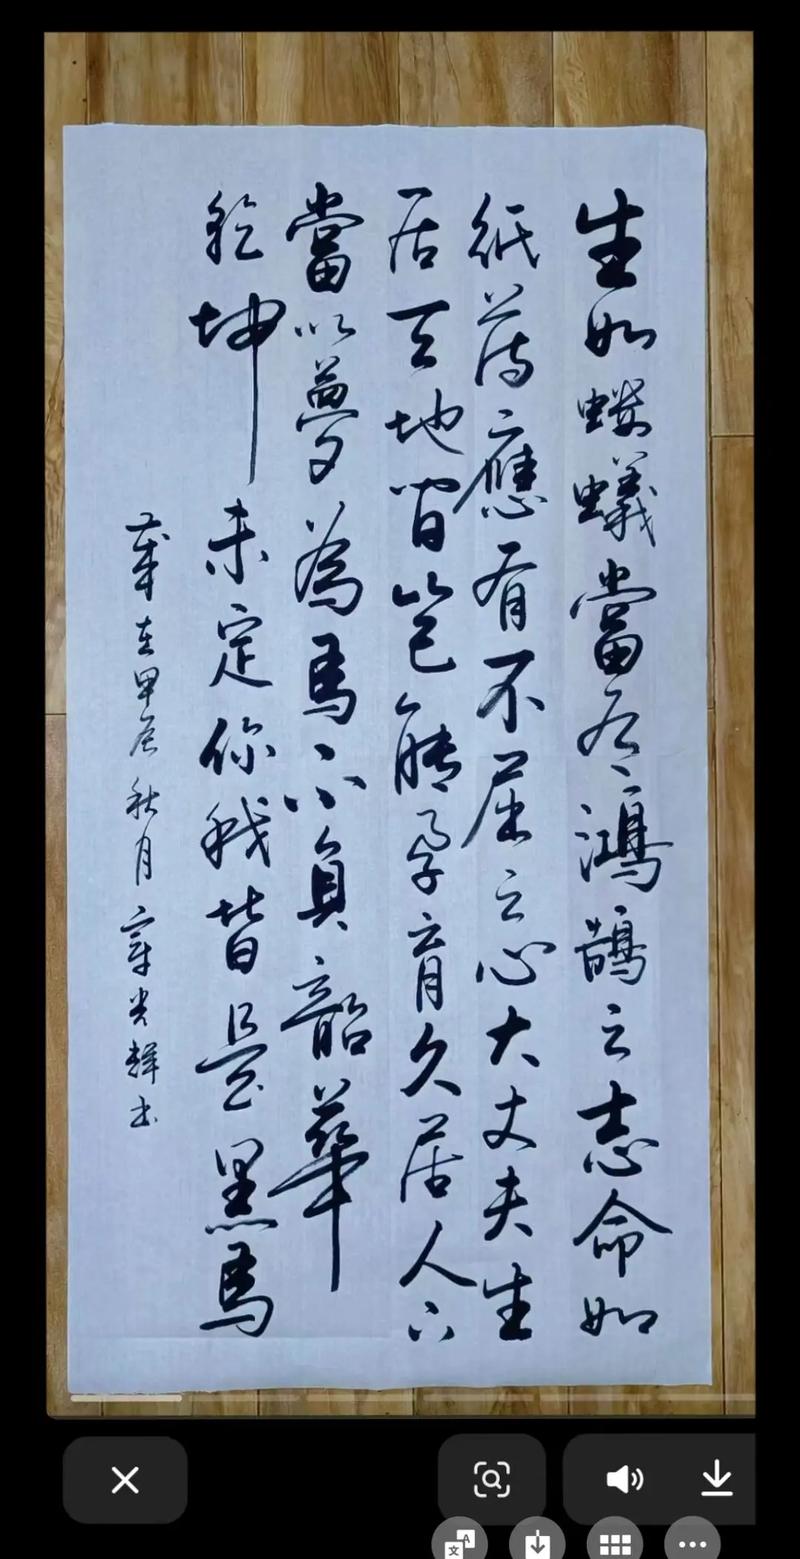 生如螻蟻當有鴻鵠之志命如
紙薄應有不屈之心大丈夫生
居天地間豈能孕育久居人下
當以夢為馬不負韶華
乾坤未定你我皆是黑馬
歲在甲辰秋月 輝书